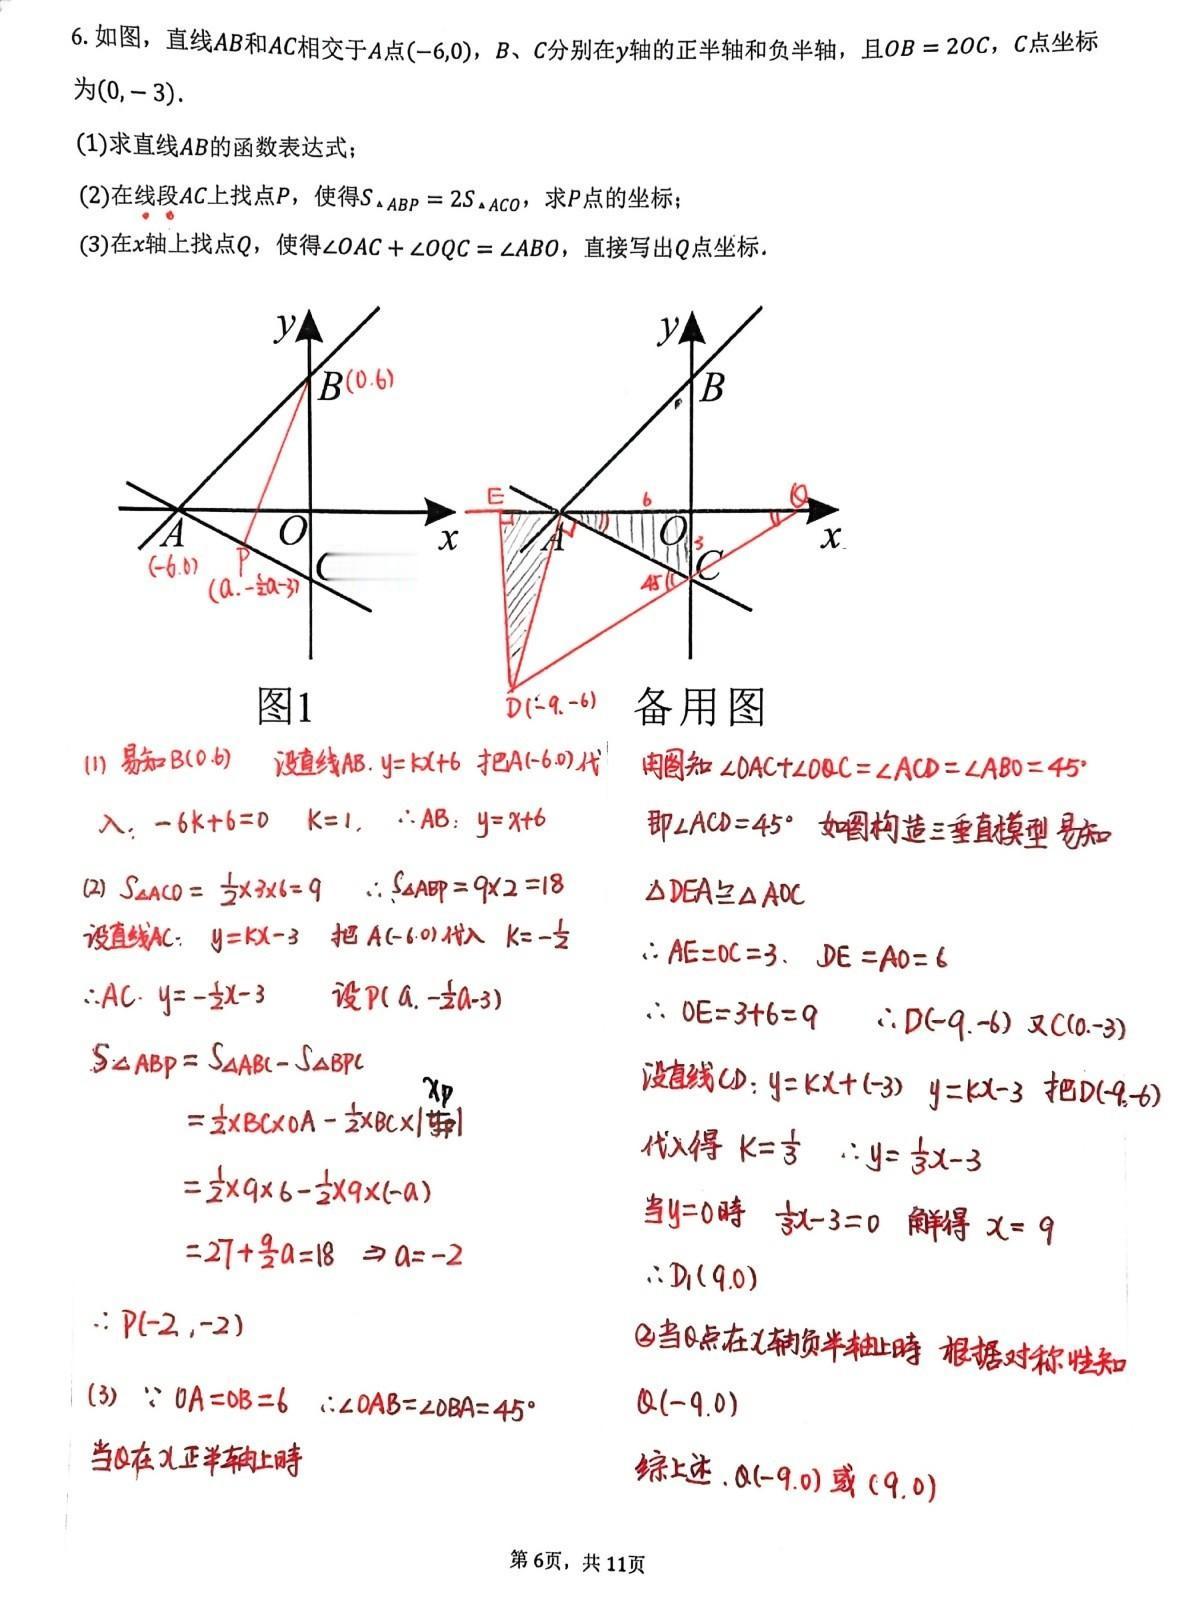 6. 如图，直线AB和AC相交于A点(−6,0)，B、C分别在y轴的正半轴和负半轴，且OB = 2OC，C点坐标
为(0, − 3)．
(1)求直线AB的函数表达式；
(2)在线段AC上找点P，使得S▵ABP = 2S▵ACO，求P点的坐标；
(3)在x轴上找点Q，使得∠OAC + ∠OQC = ∠ABO，直接写出Q点坐标．
y
B(0.6)
A
O
x
(-6.0)
P
C
(a. -½a-3)
图1
y
B
E
6
Q
A
O
x
3
C
45
D(-9.-6)
备用图
(1) 易知B(0.6) 设直线AB. y=kx+6 把A(-6.0)代
入: -6k+6=0 K=1. ∴AB: y=x+6
(2) S△ACO = ½×3×6=9 ∴S△ABP=9×2=18
设直线AC: y=kx-3 把A(-6.0)代入 K=-½
∴AC. y=-½x-3 设P(a. -½a-3)
S△ABP = S△ABC - S△BPC
=½×BC×OA - ½×BC×|xp|
=½×9×6-½×9×(-a)
=27+9/2a=18 ⇒ a=-2
∴ P(-2,-2)
(3) ∵ OA=OB=6 ∴∠OAB=∠OBA=45°
当Q在x正半轴上時
由图知 ∠OAC+∠OQC=∠ACD=∠ABO=45°
即∠ACD=45° 如图构造三垂直模型 易知
△DEA≌△AOC
∴ AE=OC=3. DE=AO=6
∴ OE=3+6=9 ∴D(-9.-6) 又C(0.-3)
设直线CD: y=kx+(-3) y=kx-3 把D(-9.-6)
代入得 K=⅓ ∴y=⅓x-3
当y=0時 ⅓x-3=0 解得 x=9
∴D₁(9.0)
②当Q点在x轴负半轴上時 根据对称性知
Q(-9.0)
综上述. Q(-9.0)或(9.0)
第 6页，共 11页